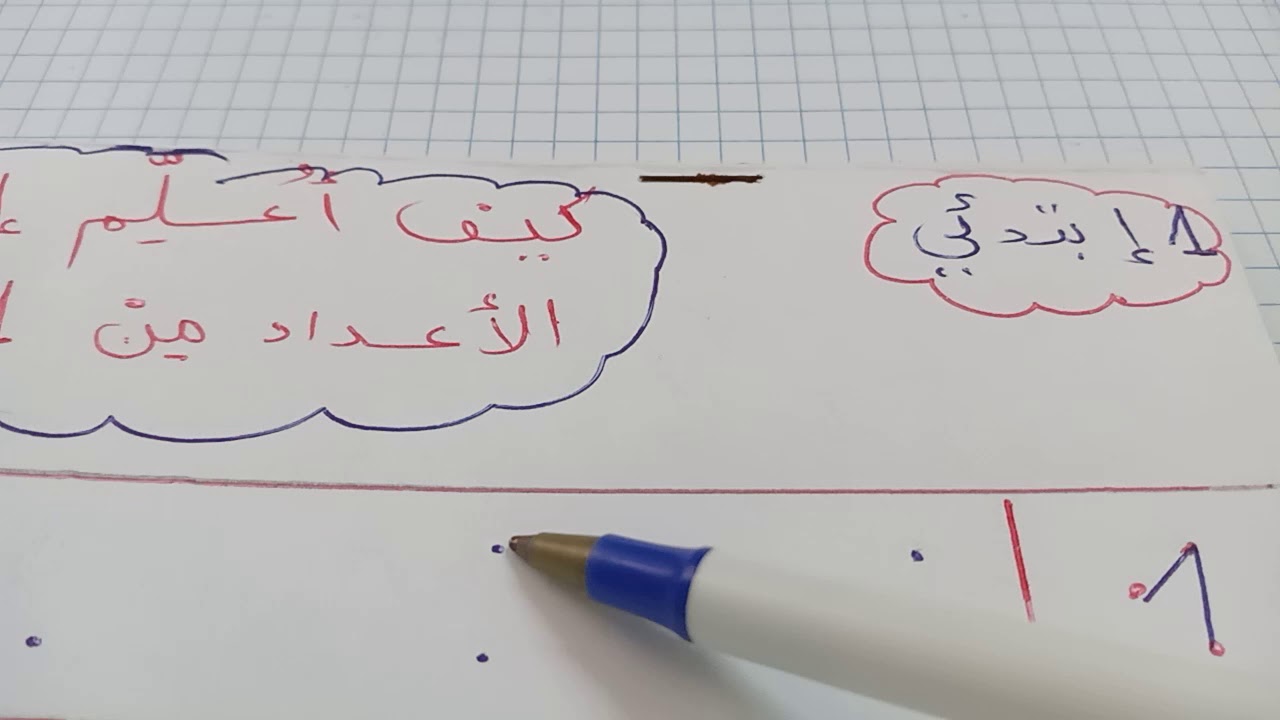 1 إبتدئي
كيف أعلّم
الأعداد من 1
1